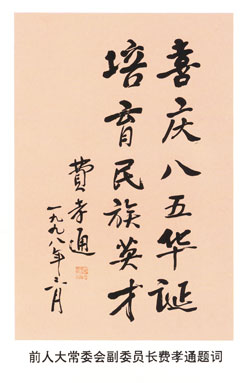 喜庆八五华诞
培育民族英才
费孝通
一九九八年六月
前人大常委会副委员长费孝通题词